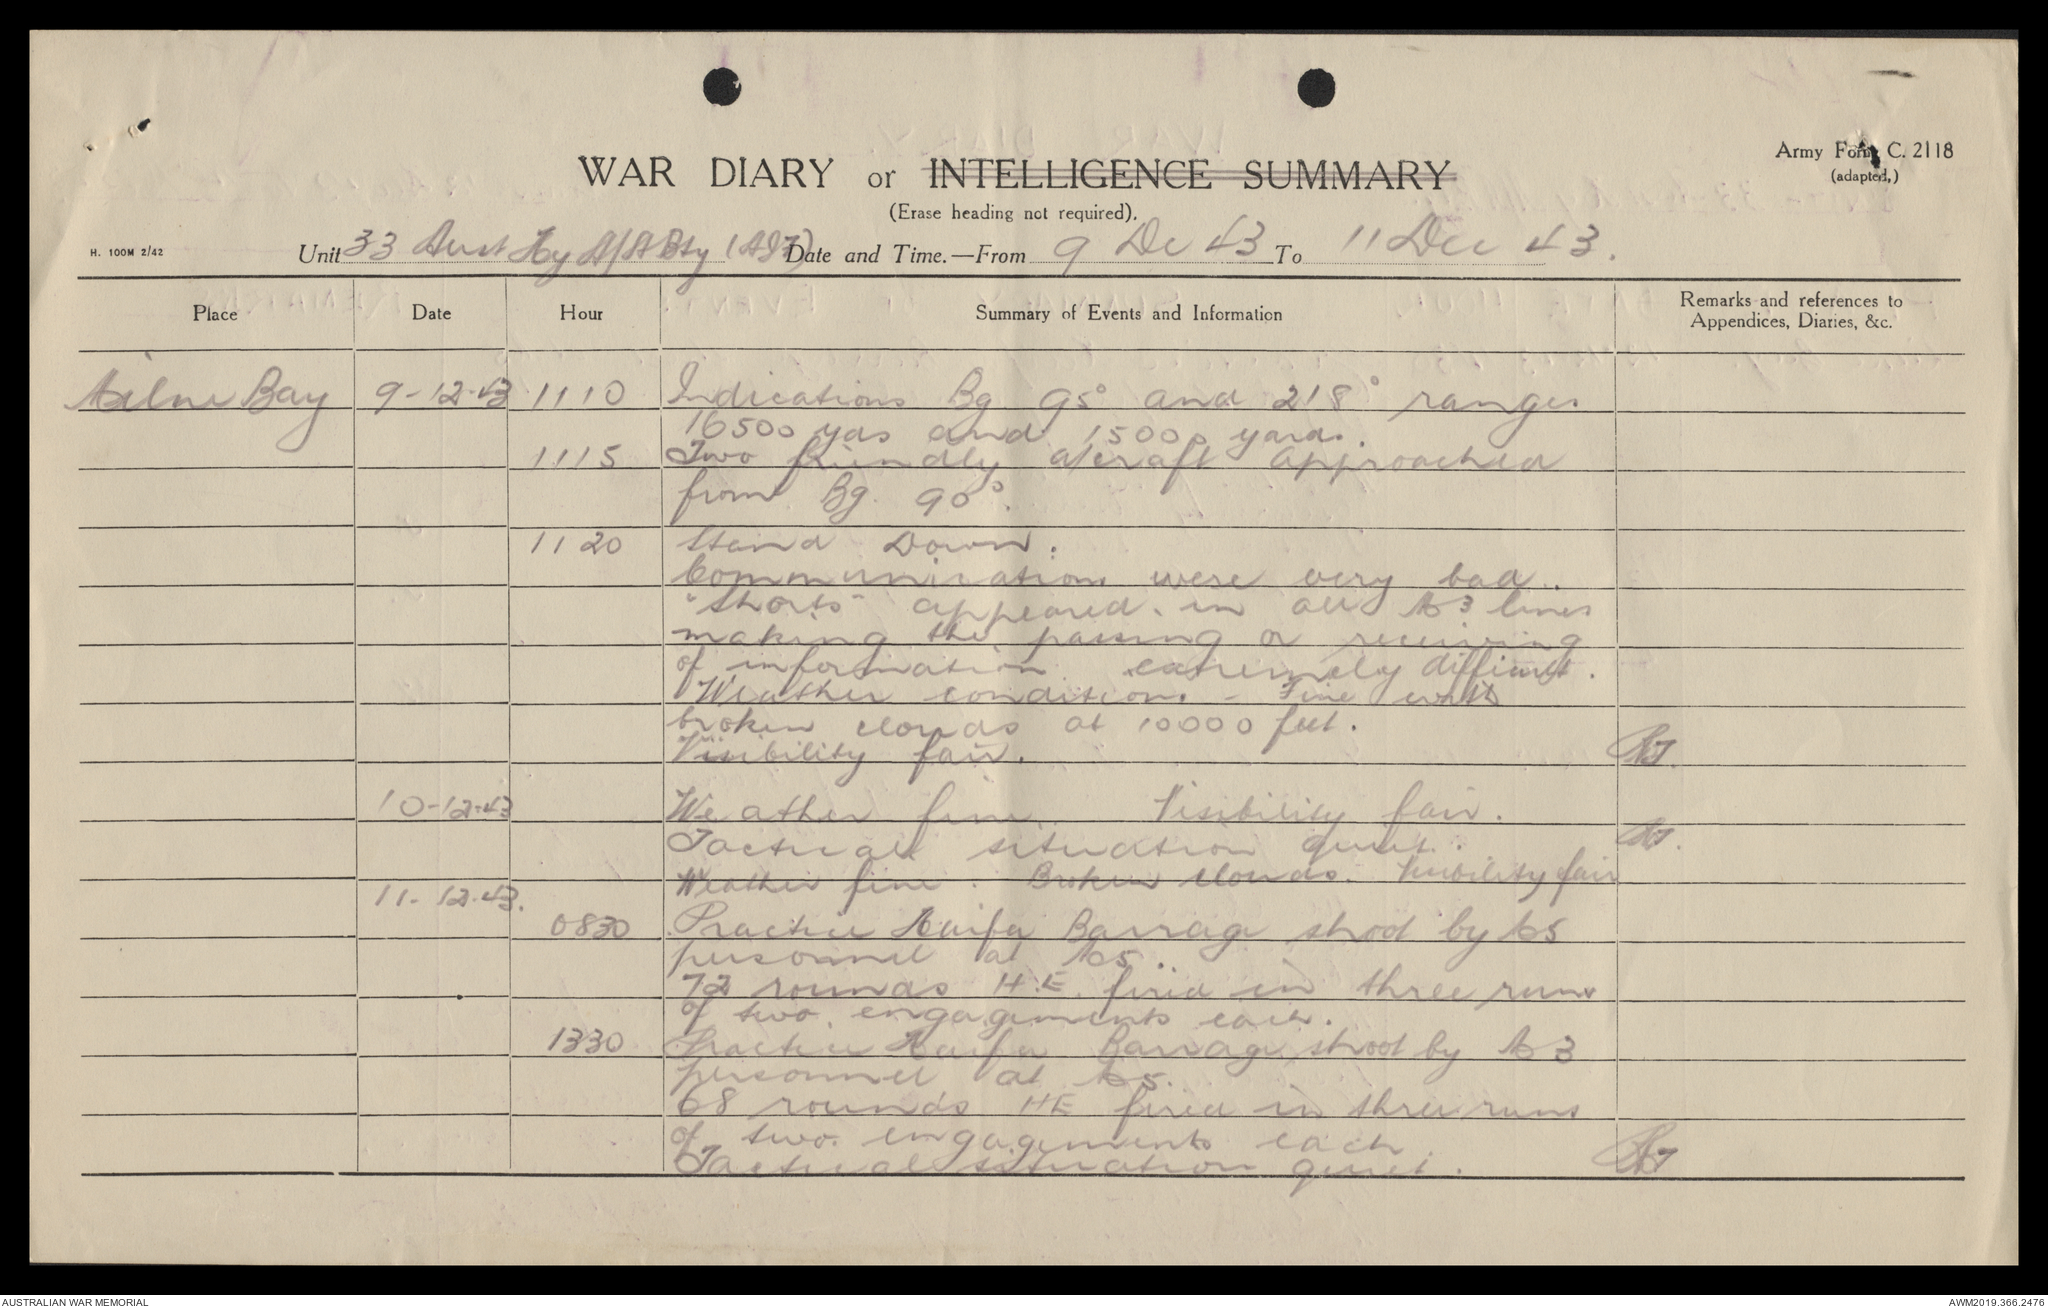 Army Form C. 2118
(adapted.)
WAR DIARY or INTELLIGENCE SUMMARY
(Erase heading not required).
H. 100M 2/42
Unit 33 Aust Hy A/A Bty (AIF) Date and Time.—From 9 Dec 43 To 11 Dec 43.
Place Date Hour Summary of Events and Information Remarks and references to
Appendices, Diaries, &c.
Milne Bay 9-12-43 1110 Indications Bg 95° and 218° ranges
16500 yds and 15000 yards.
1115 Two friendly a/craft approached
from Bg. 90°.
1120 Stand Down.
Communications were very bad.
"Shorts" appeared in all 3 lines
making the passing or receiving
of information extremely difficult.
Weather conditions - Fine with
broken clouds at 10000 feet.
Visibility fair.
10-12-43 Weather fine. Visibility fair.
Tactical situation quiet.
Weather fine. Broken clouds. Visibility fair
11-12-43.
0830 Practice Haifa Barrage shoot by 5
personnel at 5.
72 rounds H.E. fired in three runs
of two engagements each.
1330 Practice Haifa Barrage shoot by 3
personnel at 5.
68 rounds HE fired in three runs
of two engagements each.
Tactical situation quiet.
AUSTRALIAN WAR MEMORIAL
AWM2019.366.2476